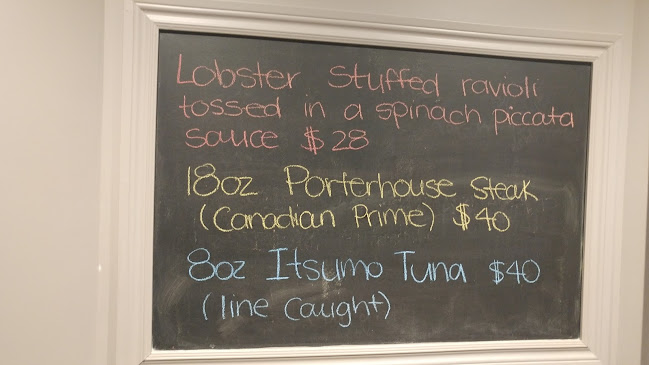 Lobster Stuffed ravioli
tossed in a spinach piccata
sauce $28
18oz Porterhouse Steak
(Canadian Prime) $40
8oz Itsumo Tuna $40
(line Caught)